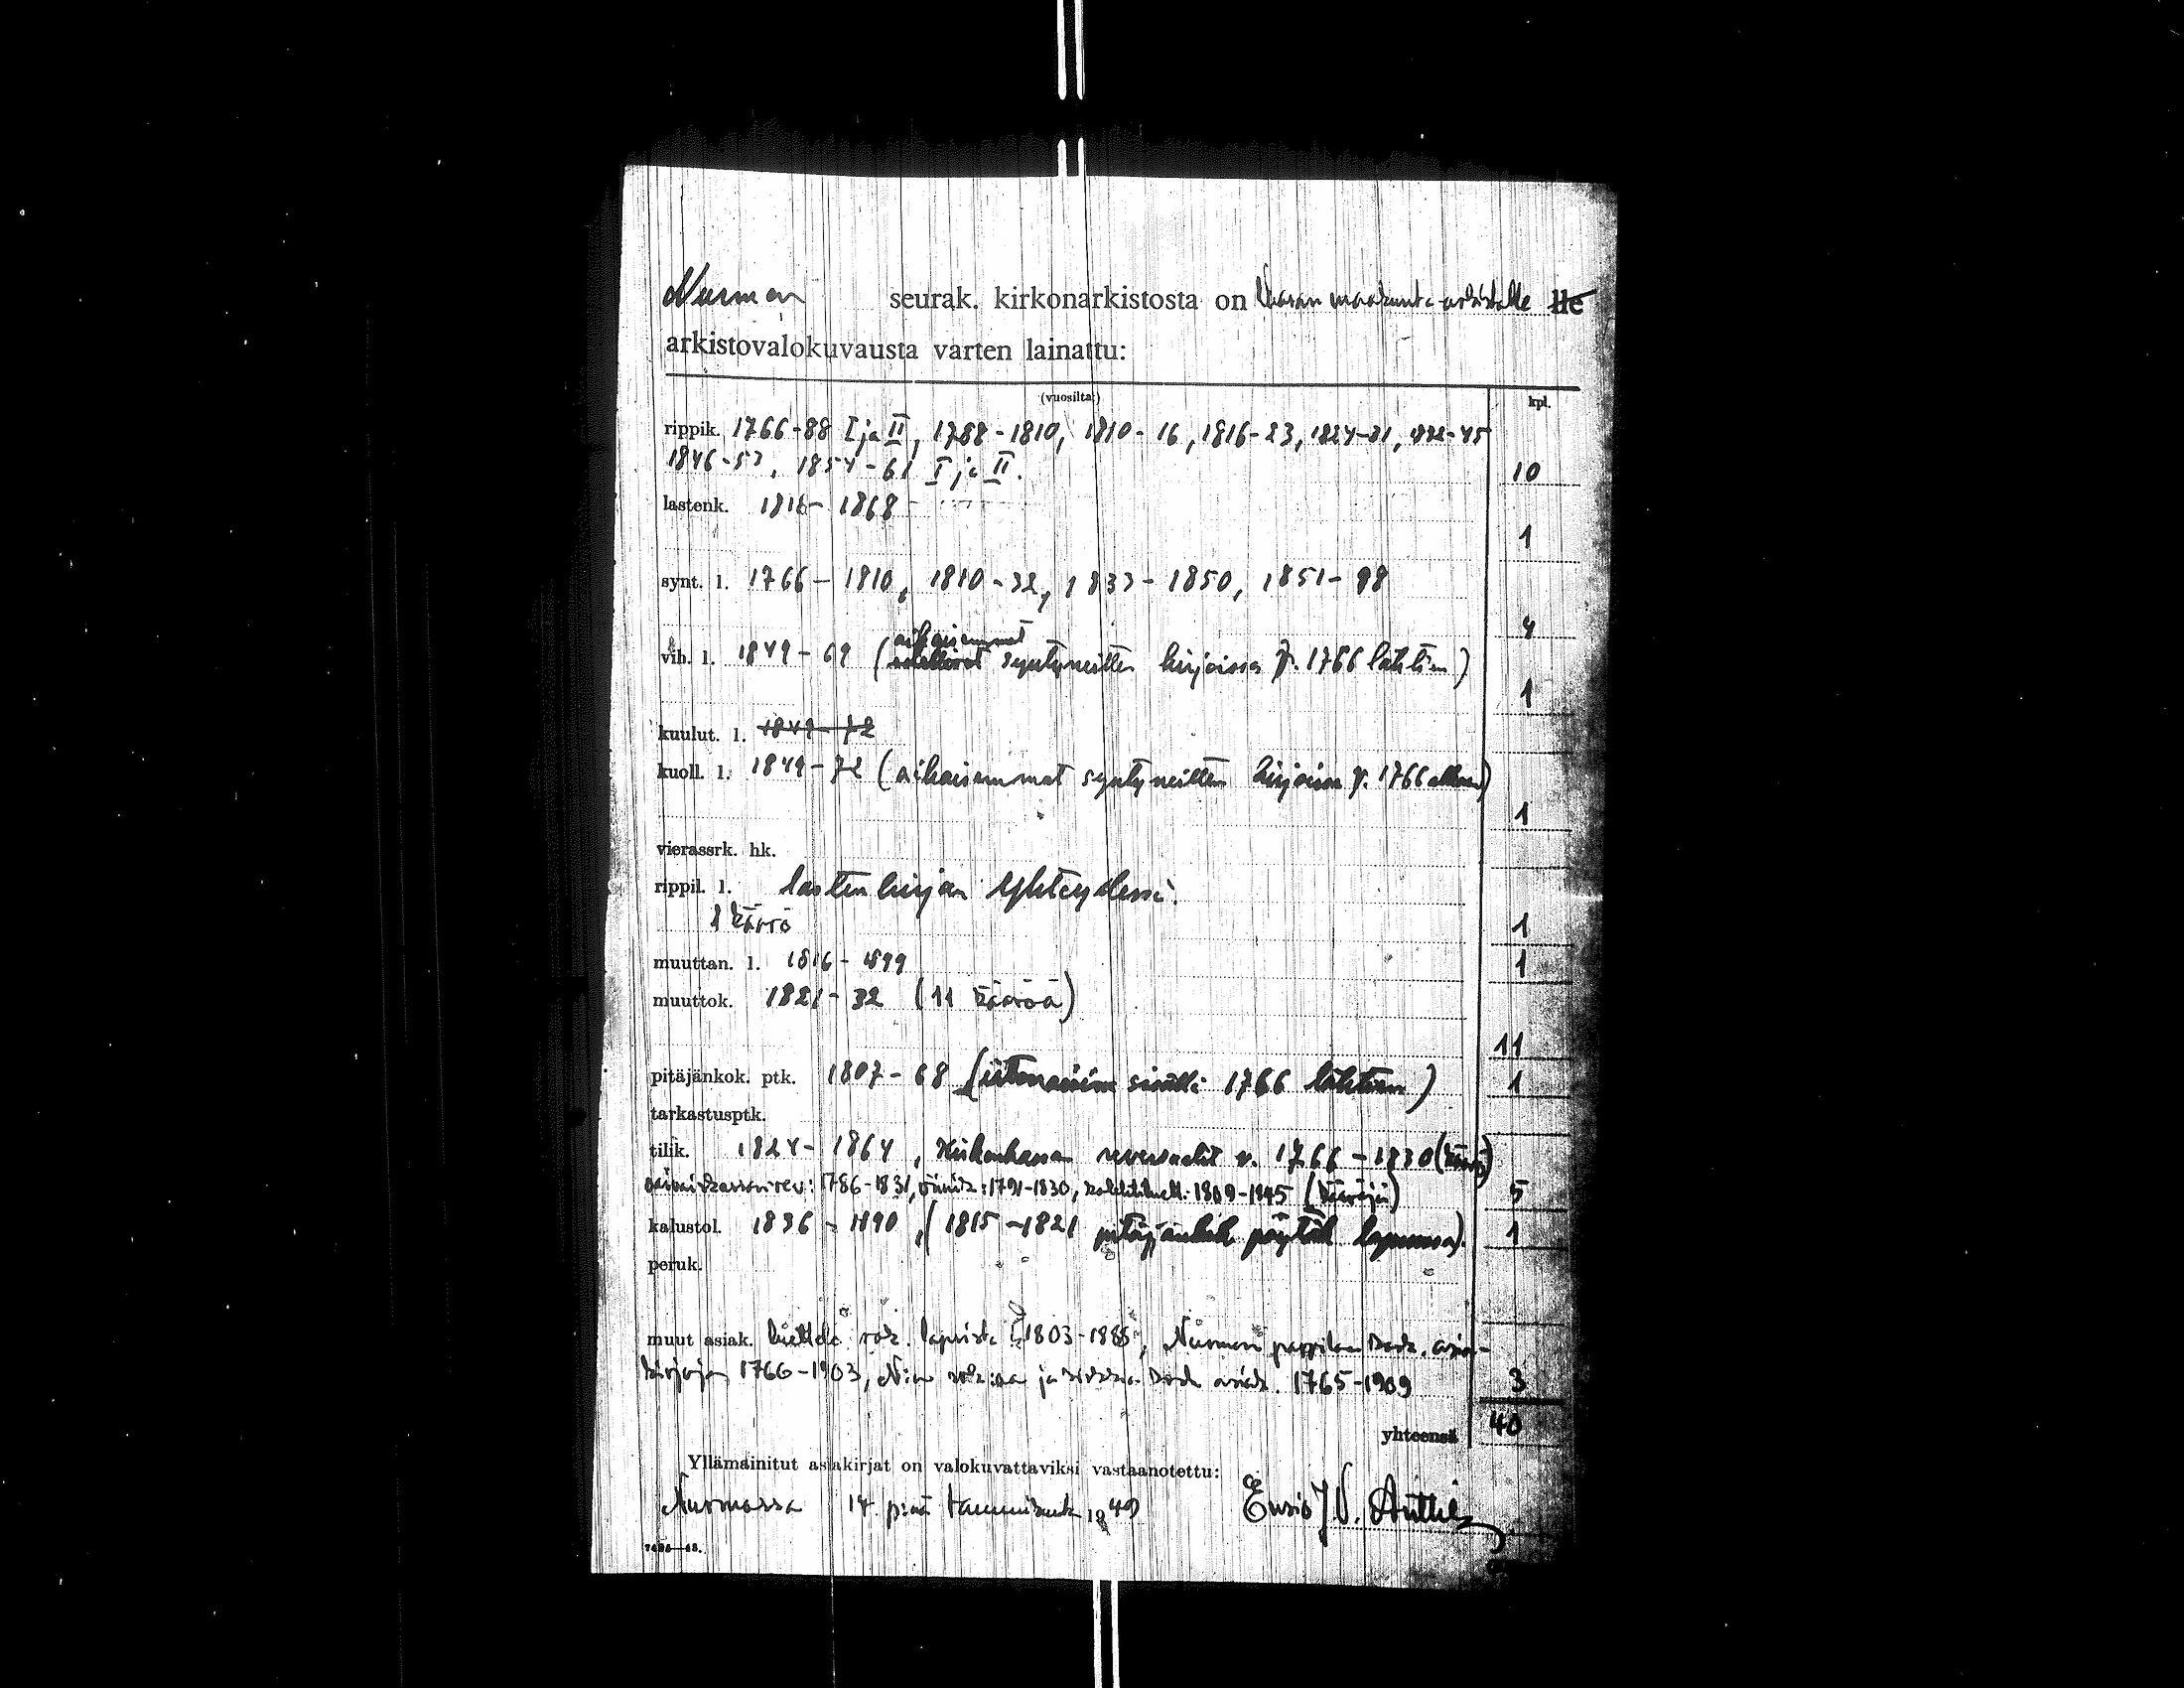 Nurmon seurak. kirkonarkistosta on Vaasan maakunta-arkistolle lle
arkistovalokuvausta varten lainattu:
(vuosilta) kpl.
rippik. 1766-88 I ja II, 1788-1810, 1810-16, 1816-23, 1824-31, 1832-45
1846-53, 1854-61 I ja II. 10
lastenk. 1816-1868
1
synt. l. 1766-1810, 1810-32, 1833-1850, 1851-98
4
aikaisemmat
vih. l. 1849-69 ( syntyneitten kirjoissa v. 1766 lähtien)
1
kuulut. l. 1849-72
kuoll. l. 1849-72 (aikaisemmat syntyneitten kirjoissa v. 1766 alkaen)
1
vierassrk. hk.
rippil. l. lastenkirjan yhteydessä.
1 käärö 1
muuttan. l. 1816-1899 1
muuttok. 1821-32 (11 kääröä)
11
pitäjänkok. ptk. 1807-68 ( 1766 lähtien) 1
tarkastusptk.
tilik. 1824-1864, v. 1766-1830
1786-1831, 1791-1830, 1809-1845 5
kalustol. 1836-1890, (1815-1821 pitäjänkok. pöytäk. lopussa). 1
peruk.
muut asiak. 1803-1885, Nurmon pappilan rak. asia-
kirjoja 1766-1903, N:n ja 1765-1909 3
yhteensä 40
Yllämainitut asiakirjat on valokuvattaviksi vastaanotettu:
Nurmossa 14 p:nä tammikuuta 1949 Ensio J V.